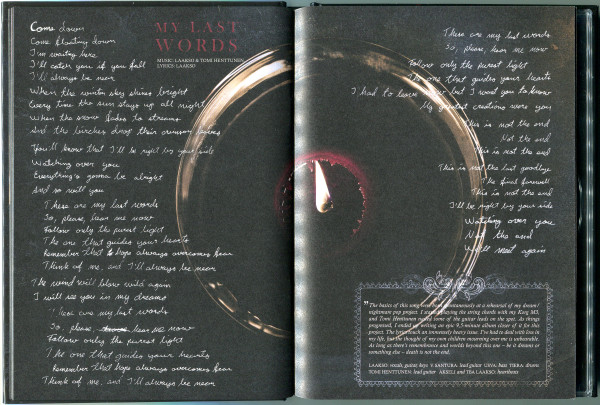 MY LAST
WORDS
MUSIC: LAAKSO & TOMI HENTTUNEN
LYRICS: LAAKSO
Come down
Come floating down
I'm waiting here
I'll catch you if you fall
I'll always be near
When the winter sky shines bright
Every time the sun stays up all night
When the snow fades to streams
And the birches drop their crimson leaves
You'll know that I'll be right by your side
Watching over you
Everything's gonna be alright
And so will you
These are my last words
So, please, hear me now
Follow only the purest light
The one that guides your hearts
Remember that hope always overcomes fear
Think of me, and I'll always be near
The wind will blow wild again
I will see you in my dreams
These are my last words
So, please, hear me now
Follow only the purest light
The one that guides your hearts
Remember that hope always overcomes fear
Think of me, and I'll always be near
These are my last words
So, please, hear me now
Follow only the purest light
The one that guides your hearts
I had to leave now but I want you to know
My greatest creations were you
This is not the end
Not the end
This is not the end
This is not the last goodbye
The final farewell
This is not the end
I'll be right by your side
Watching over you
Not the end
We'll meet again
"The basics of this song were born spontaneously at a rehearsal of my dream/
nightmare pop project. I started playing the string chords with my Korg M3,
and Tomi Henttunen added some of the guitar leads on the spot. As things
progressed, I ended up writing an epic 9,5-minute album closer of it for this
project. The lyrics touch an immensely heavy issue. I've had to deal with loss in
my life, but the thought of my own children mourning over me is unbearable.
As long as there's remembrance and worlds beyond this one – be it dreams or
something else – death is not the end.
LAAKSO: vocals, guitar, keys V. SANTURA: lead guitar USVA: bass TERRA: drums
TOMI HENTTUNEN: lead guitar AKSELI and TEA LAAKSO: heartbeats